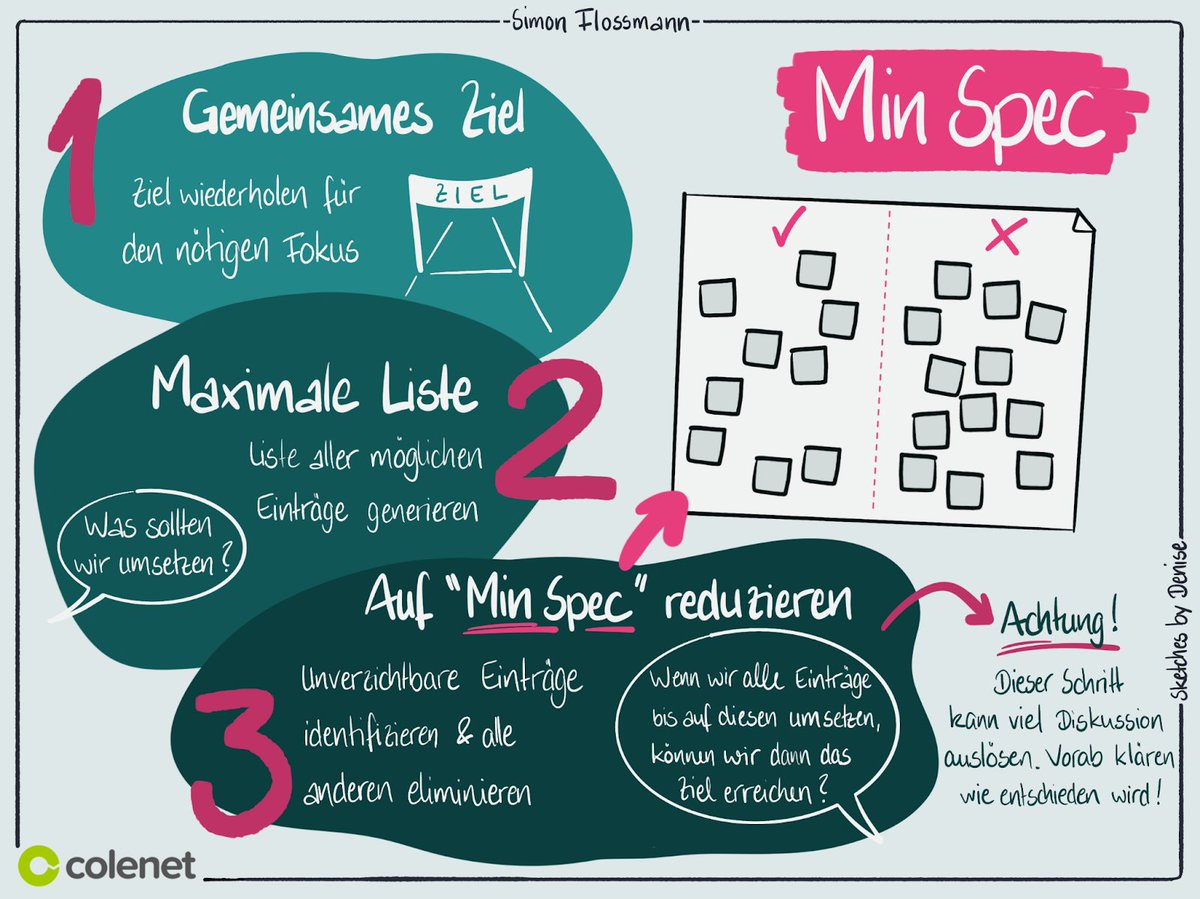 Simon Flossmann
Min Spec
1
Gemeinsames Ziel
Ziel wiederholen für
den nötigen Fokus
ZIEL
2
Maximale Liste
Liste aller möglichen
Einträge generieren
Was sollten
wir umsetzen?
3
Auf "Min Spec" reduzieren
Unverzichtbare Einträge
identifizieren & alle
anderen eliminieren
Wenn wir alle Einträge
bis auf diesen umsetzen,
können wir dann das
Ziel erreichen?
Achtung!
Dieser Schritt
kann viel Diskussion
auslösen. Vorab klären
wie entschieden wird!
Sketches by Denise
colenet